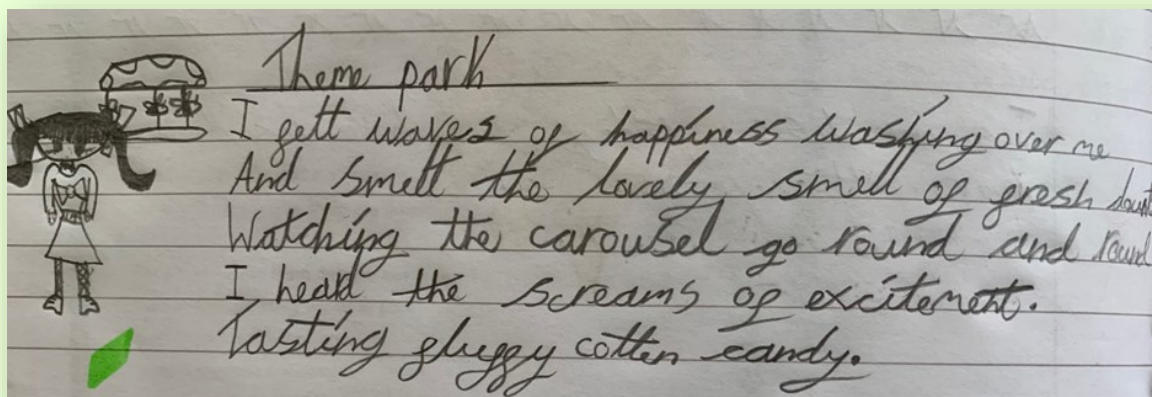 Theme park
I felt waves of happiness washing over me
And Smelt the lovely smell of fresh
Watching the carousel go round and round
I heard the screams of excitement.
Tasting fluffy cotten candy.